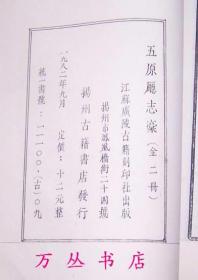 五原廳志稾（全二冊）
江蘇廣陵古籍刻印社出版
揚州市鳳凰橋街二十四號
揚州古籍書店發行
定價：十二元整
一九八二年九月
統一書號：一一一〇〇·（古）〇九
万丛书店